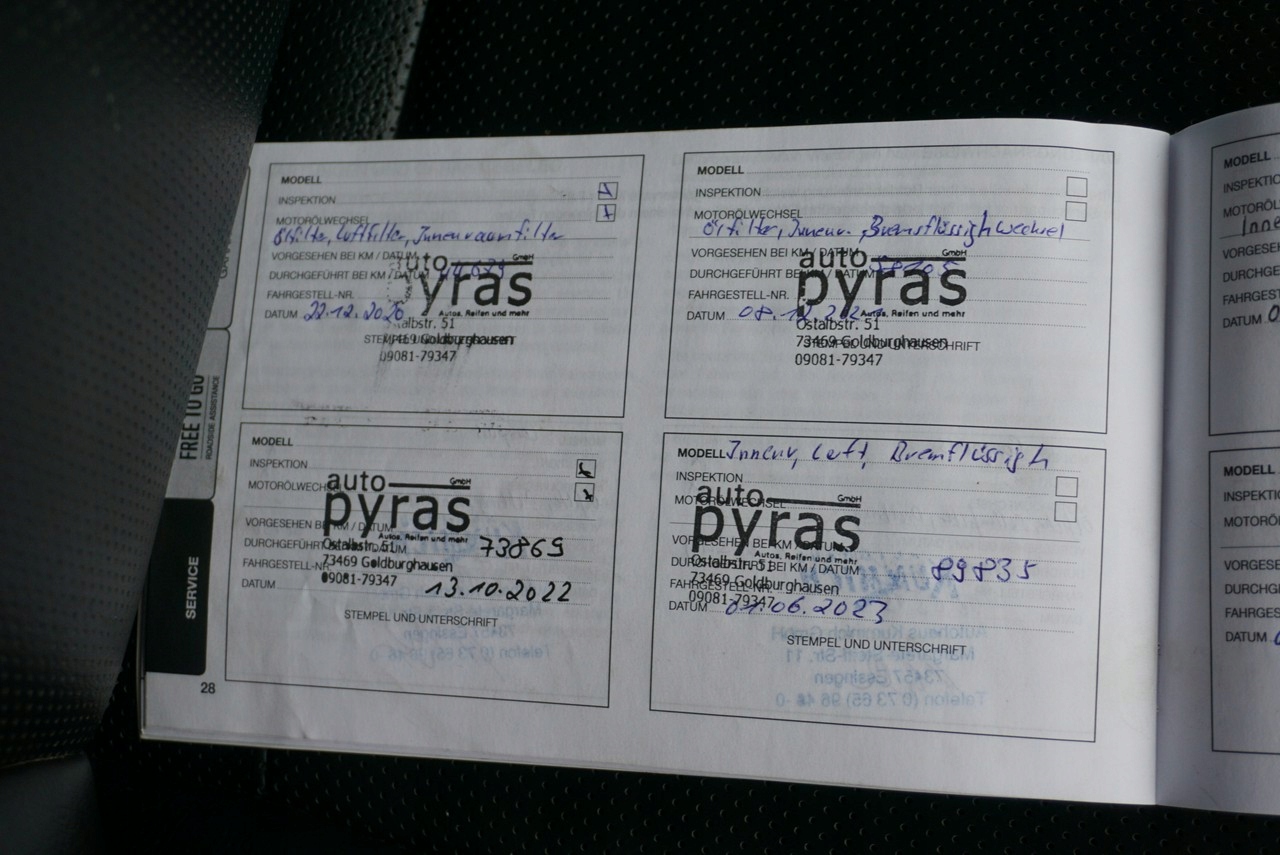 MODELL
INSPEKTION
MOTORÖLWECHSEL
Ölfilter, Luftfilter, Innenraumfilter
VORGESEHEN BEI KM / DATUM
auto GmbH
DURCHGEFÜHRT BEI KM / DATUM
pyras
FAHRGESTELL-NR.
Autos, Reifen und mehr
DATUM 22.12.2020
Ostalbstr. 51
STEMPEL UND
73469 Goldburghausen
09081-79347
MODELL
INSPEKTION
MOTORÖLWECHSEL
Ölfilter, Innenr. Bremsflüssigh wechsel
VORGESEHEN BEI KM / DATUM
auto GmbH
DURCHGEFÜHRT BEI KM / DATUM
pyras
FAHRGESTELL-NR.
Autos, Reifen und mehr
DATUM 08.12.
Ostalbstr. 51
73469 Goldburghausen
STEMPEL UND UNTERSCHRIFT
09081-79347
MODELL
INSPEKTION
MOTORÖLWECHSEL
auto GmbH
pyras
Autos, Reifen und mehr
VORGESEHEN BEI KM / DATUM
DURCHGEFÜHRT BEI KM / DATUM 73869
Ostalbstr. 51
73469 Goldburghausen
FAHRGESTELL-NR.
09081-79347
DATUM 13.10.2022
STEMPEL UND UNTERSCHRIFT
MODELL Innenr, Luft, Bremflüssigh
INSPEKTION
MOTORÖLWECHSEL
auto GmbH
pyras
Autos, Reifen und mehr
VORGESEHEN BEI KM / DATUM
DURCHGEFÜHRT BEI KM / DATUM 89835
Ostalbstr. 51
73469 Goldburghausen
FAHRGESTELL-NR.
09081-79347
DATUM 07.06.2023
STEMPEL UND UNTERSCHRIFT
FREE TO GO
ROADSIDE ASSISTANCE
SERVICE
28
MODELL
INSPEKTIO
MOTORÖL
Inne
VORGESEH
DURCHGE
FAHRGEST
DATUM
MODELL
INSPEKTI
MOTORÖ
VORGESE
DURCHG
FAHRGES
DATUM